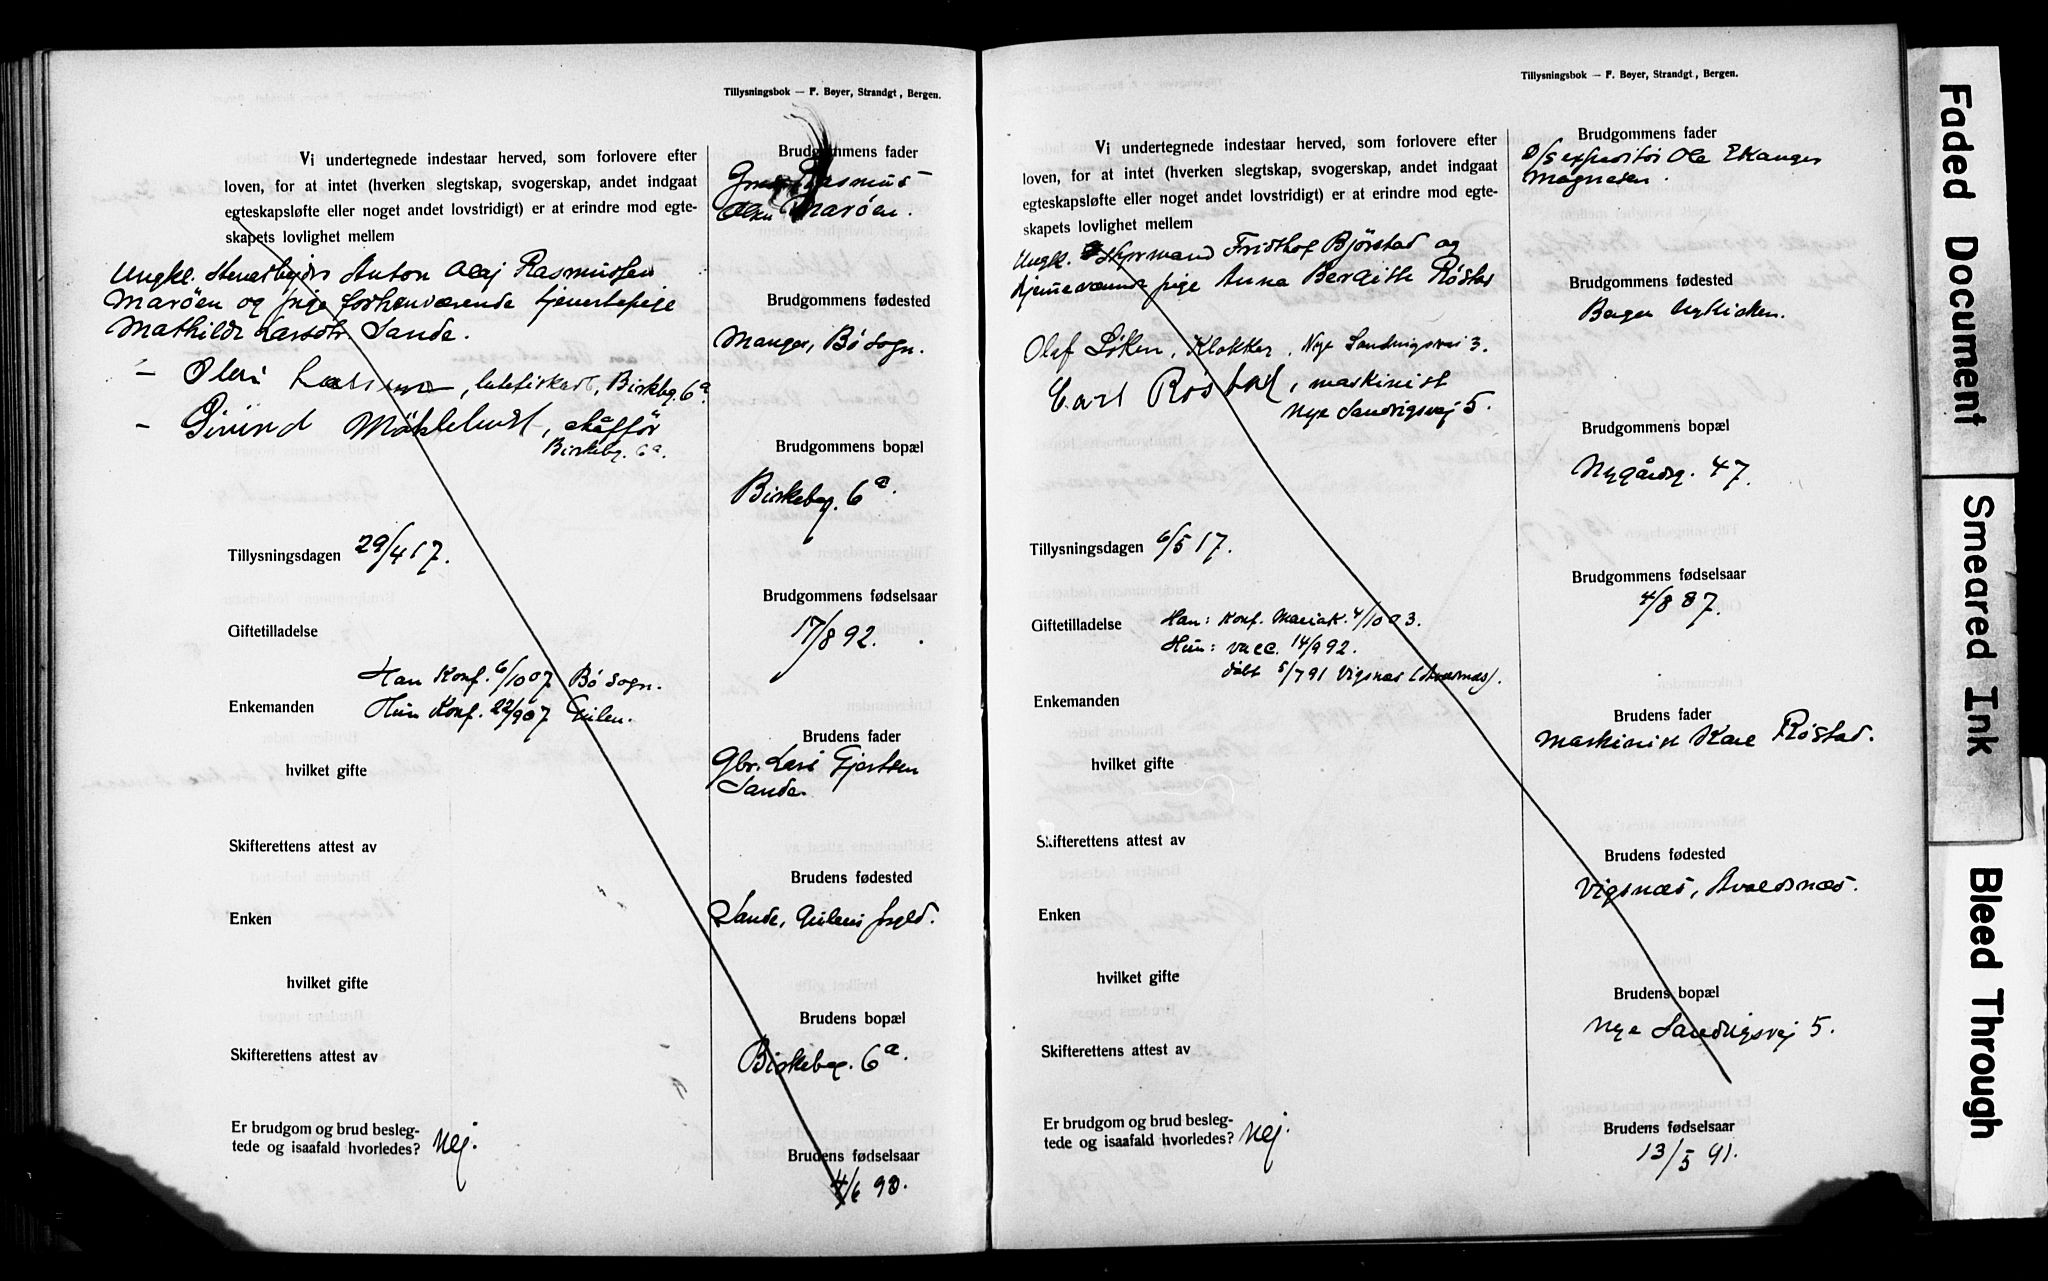 Tillysningsbok — F. Bøyer, Strandgt, Bergen.
Vi undertegnede indestaar herved, som forlovere efter
loven, for at intet (hverken slegtskap, svogerskap, andet indgaat
egteskapsløfte eller noget andet lovstridigt) er at erindre mod egte-
skapets lovlighet mellem
Ungkl. Stenarbeider Anton Olaj Rasmussen
Marøen og pige forhenværende tjenestepige
Mathilde Larsdtr. Sande.
— Birkebg. 6a.
— Eivind Möklebust, chaffør
Birkebg. 6a.
Tillysningsdagen 29/4 17.
Giftetilladelse
Han Konf. 6/10 07 Bø sogn.
Enkemanden Hun Konf. 22/9 07 Gulen.
hvilket gifte
Skifterettens attest av
Enken
hvilket gifte
Skifterettens attest av
Er brudgom og brud besleg-
tede og isaafald hvorledes? Nej.
Brudgommens fader
Rasmus
Olsen Marøen.
Brudgommens fødested
Manger, Bø sogn.
Brudgommens bopæl
Birkebg. 6a.
Brudgommens fødselsaar
17/8 92.
Brudens fader
Gbr. Lars Gjertsen
Sande.
Brudens fødested
Sande, Gulens prgld.
Brudens bopæl
Birkebg. 6a.
Brudens fødselsaar
4/6 93.
Tillysningsbok — F. Bøyer, Strandgt, Bergen.
Vi undertegnede indestaar herved, som forlovere efter
loven, for at intet (hverken slegtskap, svogerskap, andet indgaat
egteskapsløfte eller noget andet lovstridigt) er at erindre mod egte-
skapets lovlighet mellem
Ungk. Styrmand Fridthof Bjørstad og
hjemmeværende pige Anna Bergitte Røstad
Olaf Løken, Klokker, Nye Sandvigsvei 3.
Carl Røstad, maskinist
Nye Sandvigsvej 5.
Tillysningsdagen 6/5 17.
Giftetilladelse Han: Konf. Mariak. 4/10 03.
Hun: vacc. 14/9 92.
døbt 5/7 91 Vigsnæs (Avaldsnæs).
Enkemanden
hvilket gifte
Skifterettens attest av
Enken
hvilket gifte
Skifterettens attest av
Er brudgom og brud besleg-
tede og isaafald hvorledes? Nej.
Brudgommens fader
D/S expeditør Ole Ekanger
Magnesen.
Brudgommens fødested
Bergen Nykirken.
Brudgommens bopæl
Nygårdsg. 47.
Brudgommens fødselsaar
4/8 87.
Brudens fader
Maskinist Karl Røstad.
Brudens fødested
Vigsnæs, Avaldsnæs.
Brudens bopæl
Nye Sandvigsvej 5.
Brudens fødselsaar
13/5 91.
Faded Document
Smeared Ink
Bleed Through